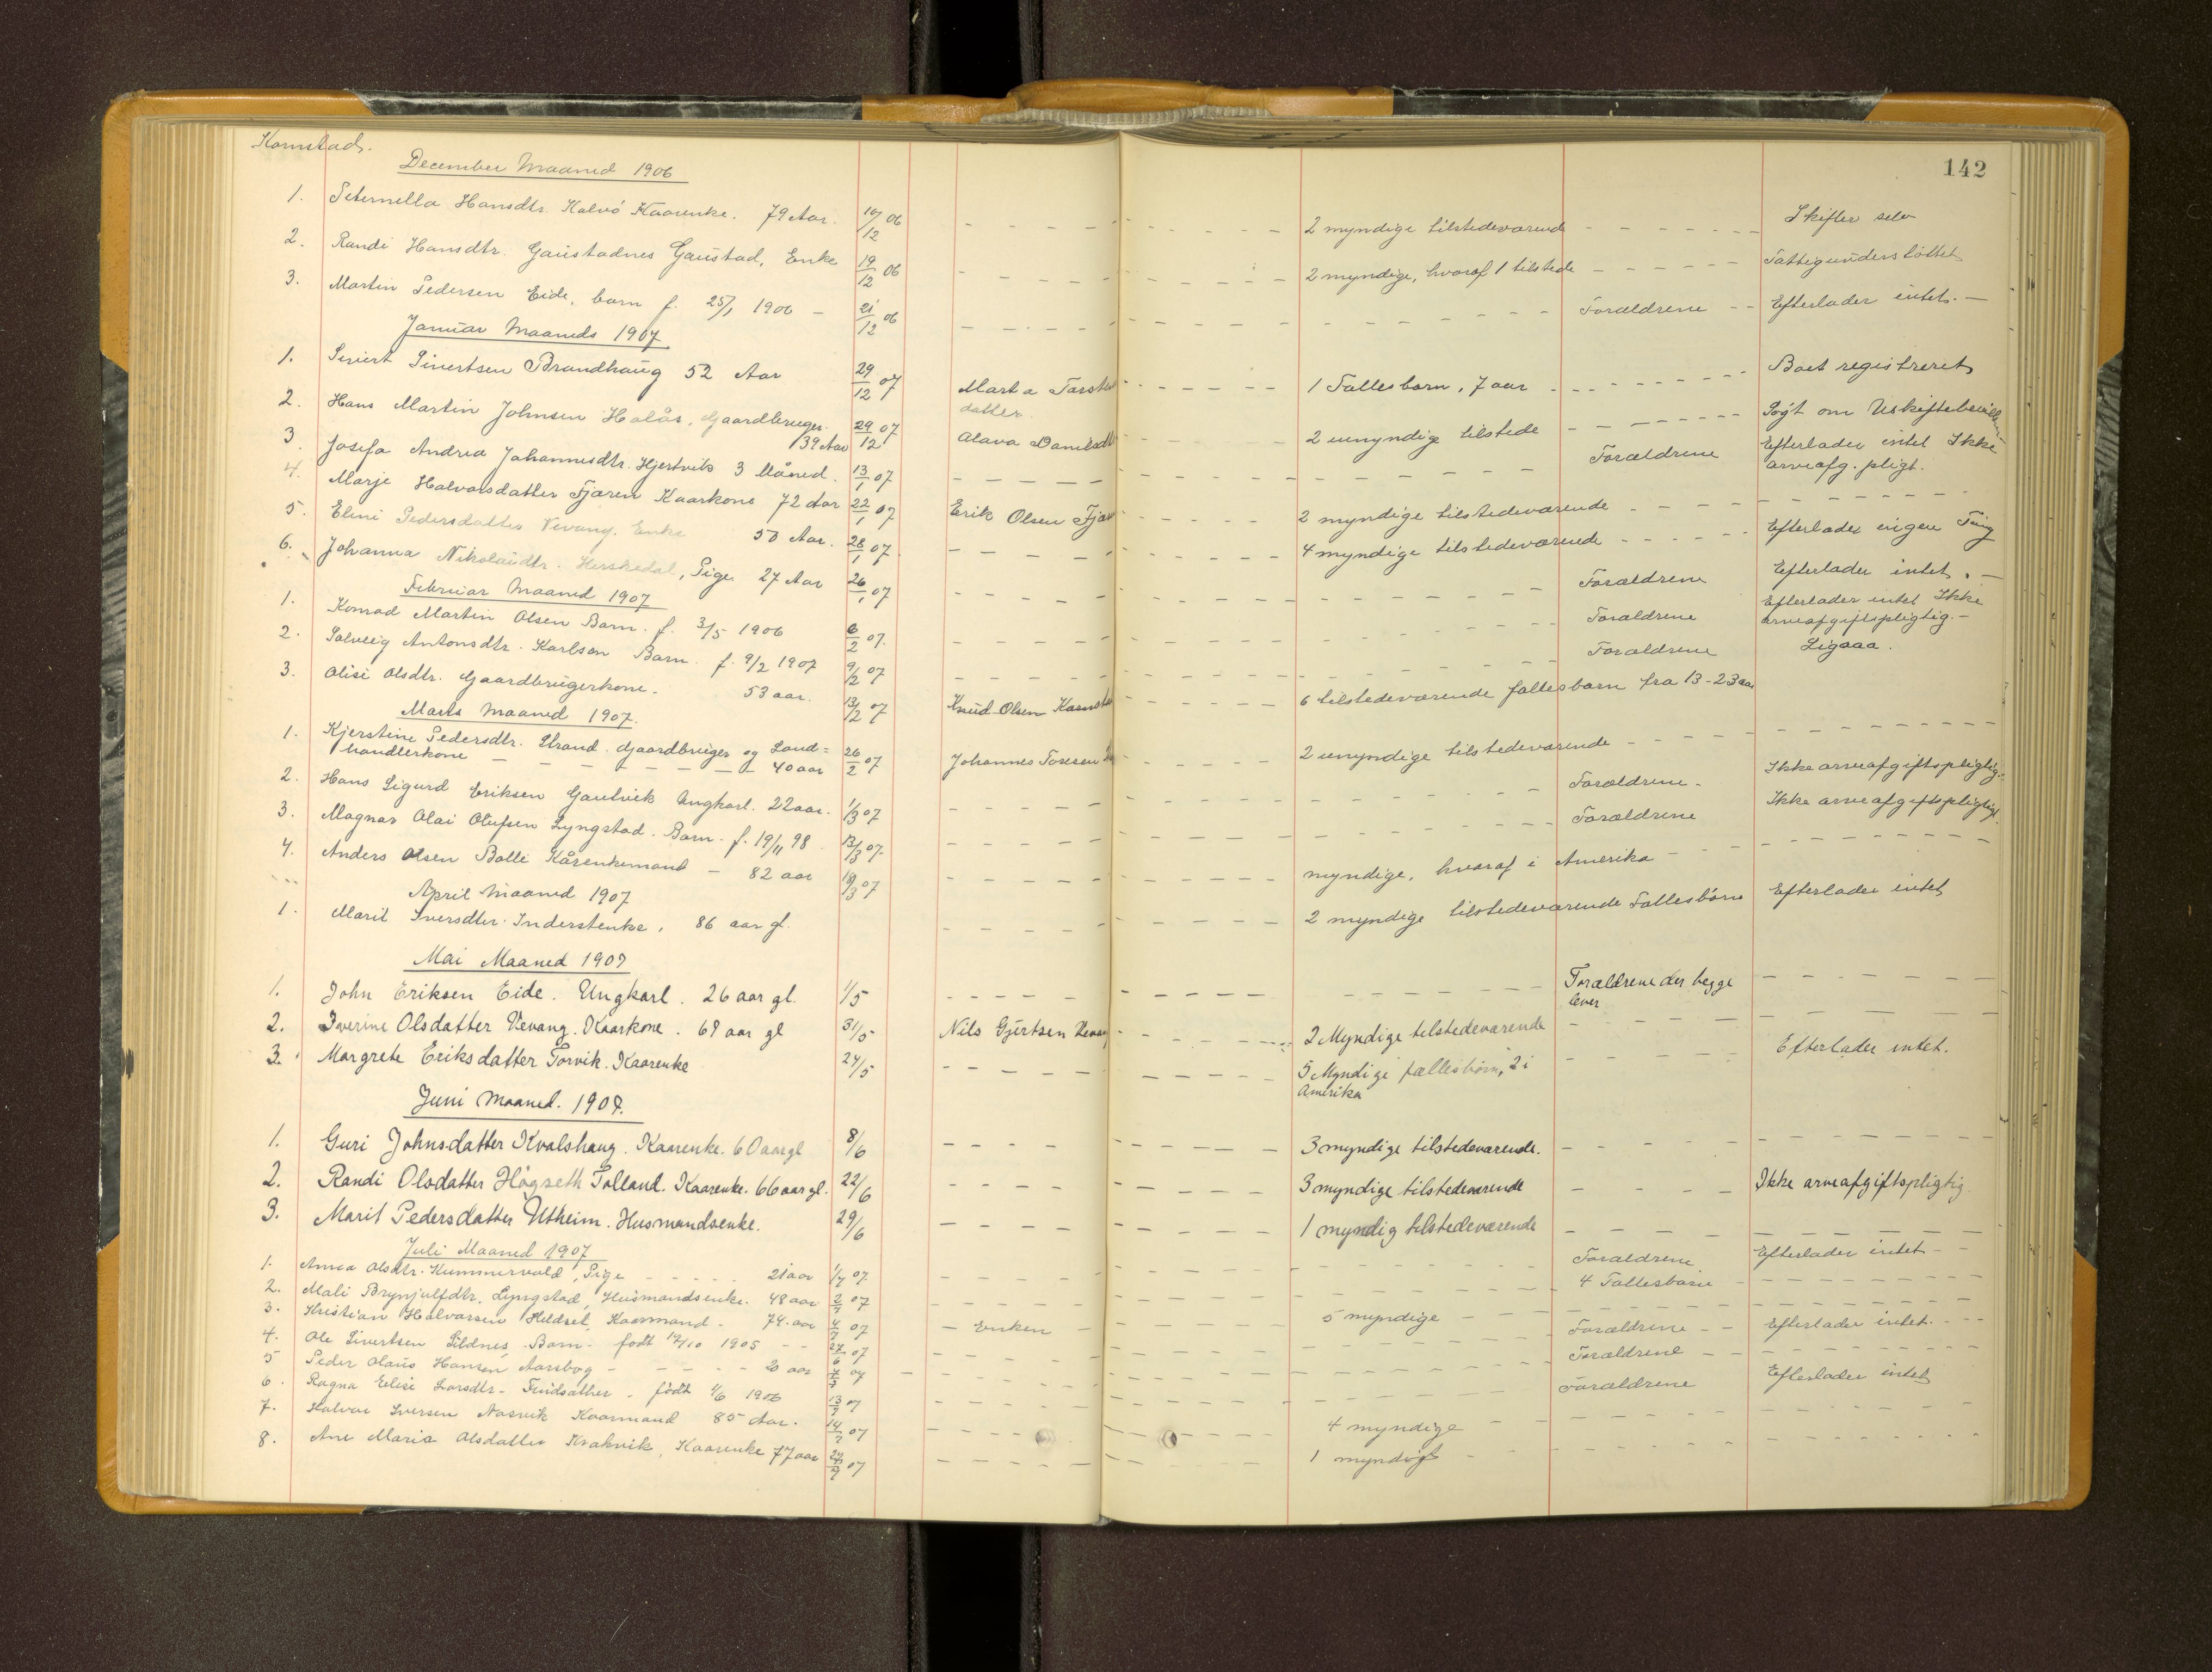 Kornstad.
142
December Maaned 1906
1. Peternella Hansdtr. Kalvö Kaarenke. 79 Aar. 10/12 06 2 myndige tilstedeværend Skifter selv
2. Randi Hansdtr. Gaustadnes Gaustad, Enke 19/12 06 2 myndige, hvoraf 1 tilstede Fattigunderstöttet
3. Martin Pedersen Eide, barn f. 25/1 1906 - 21/12 06 Forældrene -- Efterlader intet. -
Januar Maaneds 1907
1. Sivert Sivertsen Brandhaug 52 Aar 29/12 07 Marta 1 Fallesbarn, 7 aar Boet registreret
datter.
2. Hans Martin Johnsen Halås, Gaardbruger. 29/12 07 2 umyndige tilstede Sögt om
39 Aar
3. Josefa Andrea Johannesdtr. Hjertvik 3 Måned. 13/1 07 Forældrene Efterlader intet Ikke
arveafg. pligt.
4. Marje Halvorsdatter Fjæren Kaarkone 72 Aar 22/1 07 Erik Olsen 2 myndige tilstedeværende
5. Elini Pedersdatter Vevang. Enke 50 Aar. 28/1 07 4 myndige tilstedeværende Efterlader ingen Ting
6. Johanna Nikolaidtr. Herskedal, Pige 27 Aar 26/1 07 Forældrene Efterlader intet. -
Februar Maaned 1907
1. Konrad Martin Olsen Barn. f. 3/5 1906 6/2 07. Forældrene Efterlader intet Ikke
arveafgiftspligtig. -
2. Solveig Antonsdtr. Karlsen Barn. f. 9/2 1907 9/2 07 Forældrene Ligaaa.
3. Olise Olsdtr. Gaardbrugerkone. 53 aar. 13/2 07 Knud Olsen 6 tilstedeværende fallesbarn fra 13-23 aar
Marts Maaned 1907.
1. Kjerstine Pedersdtr. Strand. Gaardbruger og Land=
handlerkone 40 aar 26/2 07 Johannes 2 umyndige tilstedeværende
2. Hans Sigurd Eriksen Gaulvik Ungkarl. 22 aar. 1/3 07 Forældrene - Ikke arveafgiftspligtig.
3. Magnar Olai Olufsen Lyngstad. Barn. f. 19/11 98 13/3 07. Forældrene Ikke arveafgiftspligtigt
4. Anders Olsen Bolle Kårenkemand - 82 aar 19/3 07 myndige, hvoraf i Amerika
April Maaned 1907
1. Marit Iversdtr. Inderstenke, 86 aar gl. 2 myndige tilstedeværende Fallesbörn Efterlader intet
Mai Maaned 1907
1. John Eriksen Eide. Ungkarl. 26 aar gl. 1/5 Forældrene der begge
lever
2. Iverine Olsdatter Vevang. Kaarkone. 69 aar gl 31/5 Nils Gjertsen Vevang 2 Myndige tilstedeværende
3. Margrete Eriksdatter Torvik. Kaarenke 24/5 5 Myndige fællesbörn, 2 i Efterlader intet.
Amerika
Juni Maaned. 1907.
1. Guri Johnsdatter Kvalshaug. Kaarenke. 60 aar gl 8/6 3 myndige tilstedeværende.
2. Randi Olsdatter Högseth Tolland. Kaarenke. 66 aar gl. 22/6 3 myndige tilstedeværende Ikke arveafgiftspligtig
3. Marit Pedersdatter Utheim. Husmandsenke. 29/6 1 myndig tilstedeværende
Juli Maaned 1907
1. Anna Olsdtr. Kummervold, Pige 21 aar 1/7 07 Forældrene Efterlader intet -
2. Mali Brynjulfdtr. Lyngstad, Husmandsenke. 48 aar 2/7 07 4 Fallesbarn
3. Kristian Halvorsen Heldset, Kaarmand - 74. aar 4/7 07 - Enken - 5 myndige
4. Ole Sivertsen Sildnes, Barn. födt 14/10 1905 -- 27/6 07 Forældrene - Efterlader intet.
5 Peder Olaus Hansen Aarsbog 20 aar 4/7 07 Forældrene
6. Ragna Elise Larsdtr. - Findsæther - födt 4/6 1906 13/7 07 Forældrene Efterlader intet
7. Halvor Iversen Nasvik Kaarmand 85 Aar. 14/7 07 4 myndige
8. Ane Maria Olsdatter Krakvik, Kaarenke 77 aar 07 1 myndigt